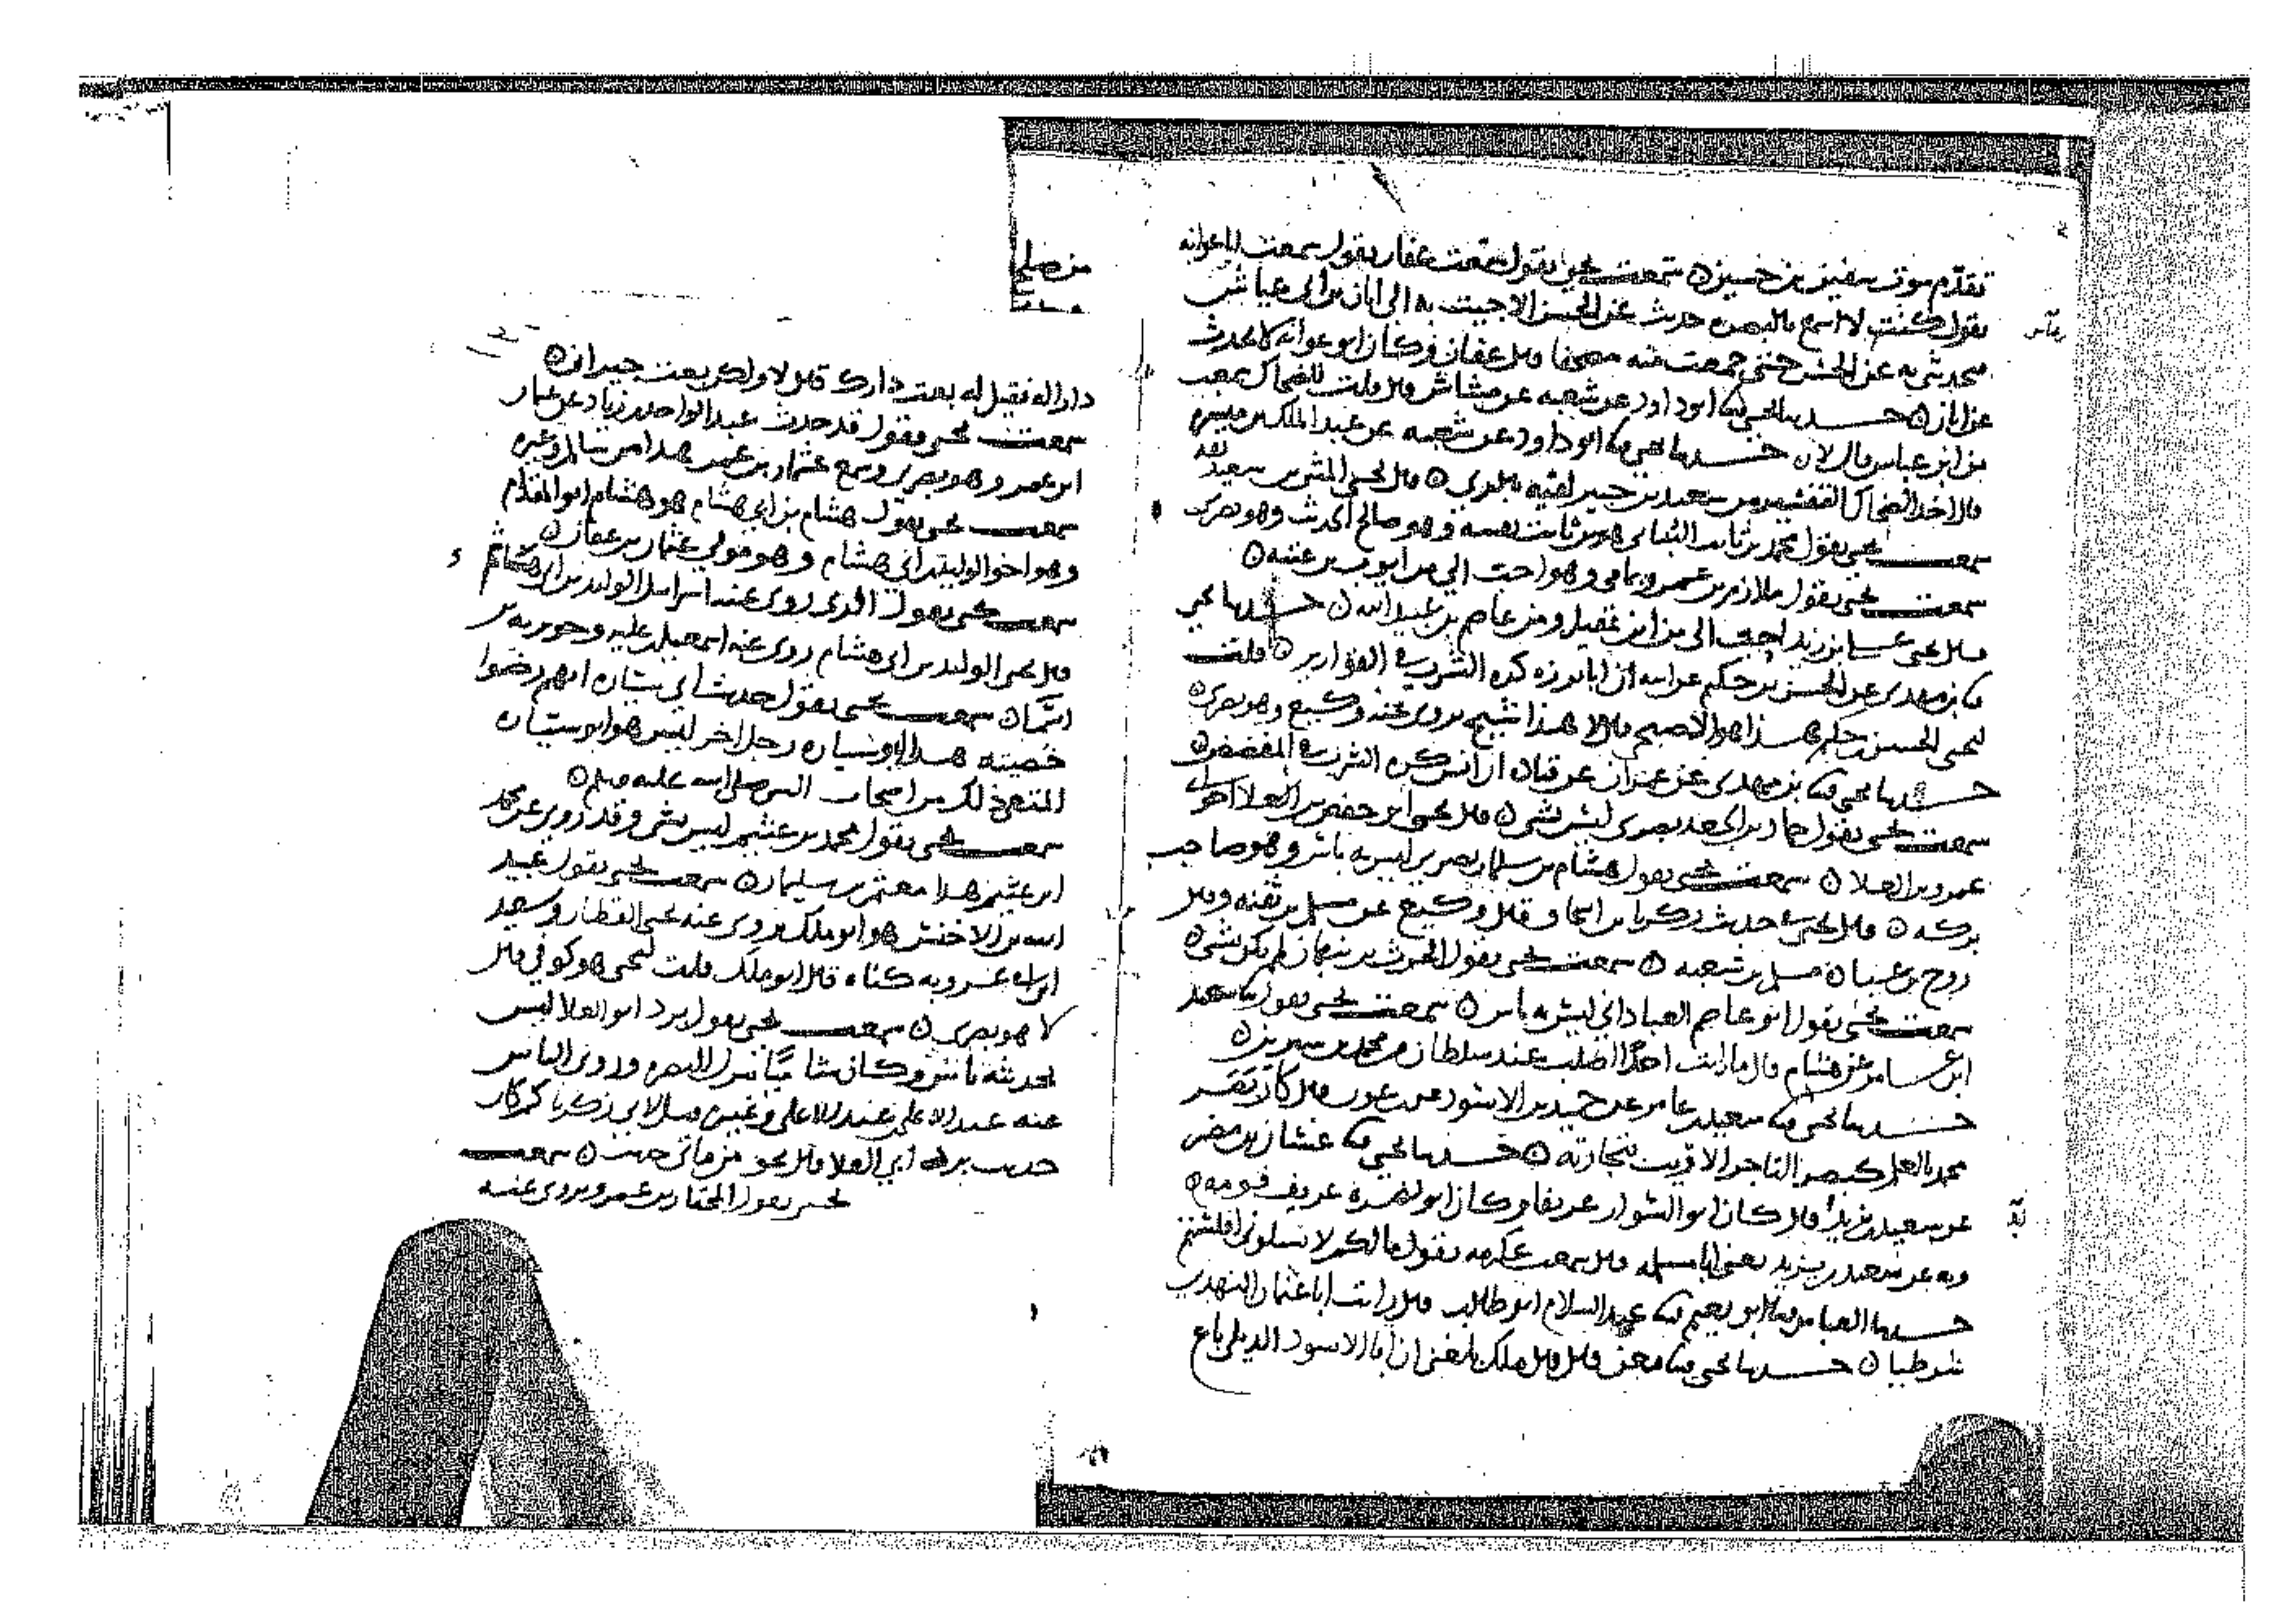 تقدم موت سفين بن حسين ٥ سمعت يحيى يقول سمعت عفان يقول سمعت ابا عوانه
يقول كنت لا اسمع بالبصره حديث عن الحسن الا جيت به الى ابان بن ابي عياش
فيحدثني به عن الحسن حتى جمعت منه مصحفا قال عفان وكان ابو عوانه لا يحدث
عن ابان ٥ حدثنا يحيى نا ابو داود عن شعبه عن مشاش قال قلت للضحاك سمعت
من ابن عباس قال لا ٥ حدثنا يحيى نا ابو داود عن شعبه عن عبد الملك بن ميسره
قال اخذ الضحاك التفسير من سعيد بن جبير لقيه بالري ٥ قال يحيى المثنى بن سعيد ثقه
سمعت يحيى يقول محمد بن ثابت البناني هو بن ثابت نفسه وهو صالح الحديث وهو بصري
سمعت يحيى يقول ملازم بن عمرو يمامي وهو احب الي من ايوب بن عتبه ٥
قال يحيى علي بن زيد احب الي من ابن عقيل ومن عاصم بن عبيد الله ٥ حدثنا يحيى
نا بن مهدي عن الحسن بن حكم عن امه ان ابا برزه كره الشرب في القوارير ٥ قلت
ليحيى الحسن بن حكم هذا هو الاصبح قال لا هذا شيخ يروي عنه وكيع وهو بصري ٥
حدثنا يحيى نا بن مهدي عن عمران عن قتاده ان انس كره الشرب في المفضض ٥
سمعت يحيى يقول حماد بن الجعد بصري ليس بشي ٥ قال يحيى ابو حفص بن العلا اخو ابي
عمرو بن العلا ٥ سمعت يحيى يقول هشام بن سلمان بصري ليس به باس وهو صاحب
بركه ٥ قال يحيى في حديث زكريا بن اسحاق قال وكيع عن مسلم بن ثفنه وقال
روح بن عباده مسلم بن شعبه ٥ سمعت يحيى يقول الحرث بن نبهان لم يكن بشي ٥
سمعت يحيى يقول ابو عاصم العباداني ليس به باس ٥ سمعت يحيى يقول نا سعيد
ابن عامر عن هشام قال ما رايت احدا اصلب عند سلطان من محمد بن سيرين ٥
حدثنا يحيى نا سعيد بن عامر عن حميد بن الاسود عن بن عون قال كان بصر
محمد بالعلم كبصر التاجر الاريب بتجارته ٥ حدثنا يحيى نا غسان بن مضر
عن سعيد بن يزيد قال كان ابو السوار عريفا وكان ابو نضره عريف قومه ٥
وبه عن سعيد بن يزيد يعني ابا مسلمه قال سمعت عكرمه يقول ما لكم لا تسلوني افلستم
حدثنا العباس نا ابو نعيم نا عبد السلام ابو طالب قال رايت ابا عثمان النهدي
شرطيا ٥ حدثنا يحيى نا معن قال قال ملك بلغني ان ابا الاسود الديلي باع
داراله فقيل له بعت دارك قال لا ولكن بعت جيراني ٥
سمعت يحيى يقول قد حدث عبد الواحد بن زياد عن عمار
ابن عمير وهو بصري وسمع عثمان بن عمير هذا من سالم وغيره
سمعت يحيى يقول هشام بن ابي هشام هو هشام ابو المقدام
وهو اخو الوليد بن ابي هشام وهو مولى عثمان بن عفان ٥
سمعت يحيى يقول الذي روى عنه اسراييل الوليد بن ابي هشام
قال يحيى الوليد بن ابي هشام روى عنه اسمعيل بن عليه وجويريه بن
اسما ٥ سمعت يحيى يقول حديث ابي سنان انهم رضوا
خصيته هذا ابو سنان رجل اخر ليس هو ابو سنان
المتعوذ لكن من اصحاب النبي صلى الله عليه وسلم ٥
سمعت يحيى يقول محمد بن عثيم ليس بشي وقد روى عن محمد
ابن عثيم هذا معتمر بن سليمان ٥ سمعت يحيى يقول عبيد
الله بن الاخنس هو ابو ملك يروي عنه يحيى القطان وسعيد
ابن ابي عروبه كناه قال ابو ملك قلت ليحيى هو كوفي قال
لا هو بصري ٥ سمعت يحيى يقول برد ابو العلا ليس
بحديثه باس وكان شاميا نزل البصره وروى الناس
عنه عبد الاعلى بن عبد الاعلى وغيره قيل لابي زكريا كم كان
حديث برد ابي العلا قال نحو من مايتي حديث ٥ سمعت
يحيى يقول المختار بن عمرو يروي عنه